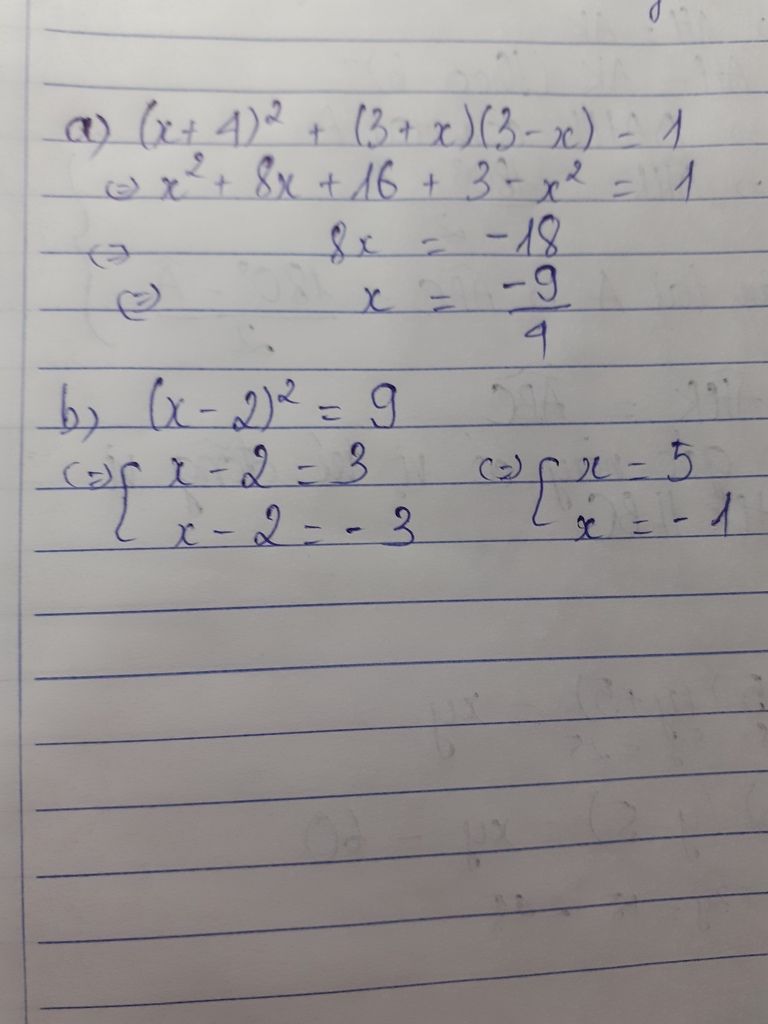 a) (x + 4)² + (3 + x)(3 - x) = 1
(=) x² + 8x + 16 + 3 - x² = 1
(=) 8x = -18
(=) x = -9/4
b) (x - 2)² = 9
(=) { x - 2 = 3 (=) { x = 5
x - 2 = - 3 x = - 1